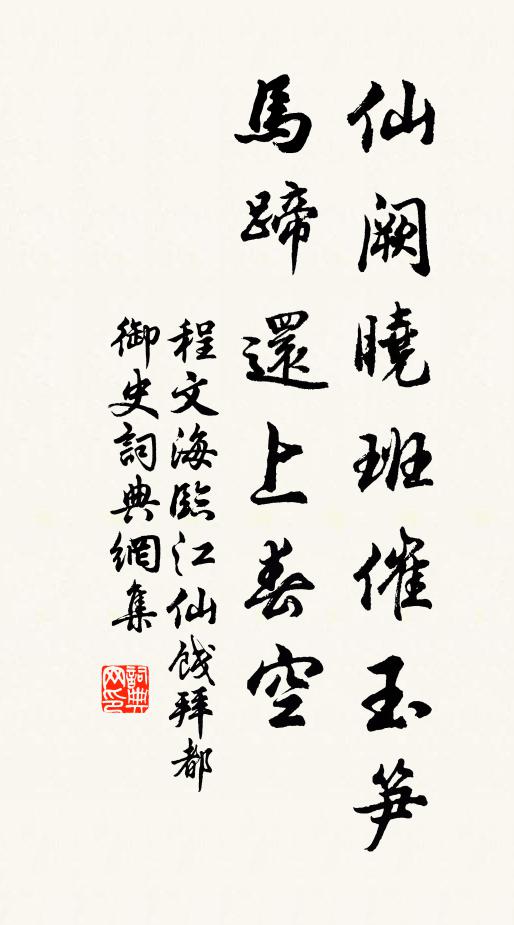 仙阙曉班催玉笋
馬蹄還上春空
程文海臨江仙餞拜都
御史詞典網集
詞典网印